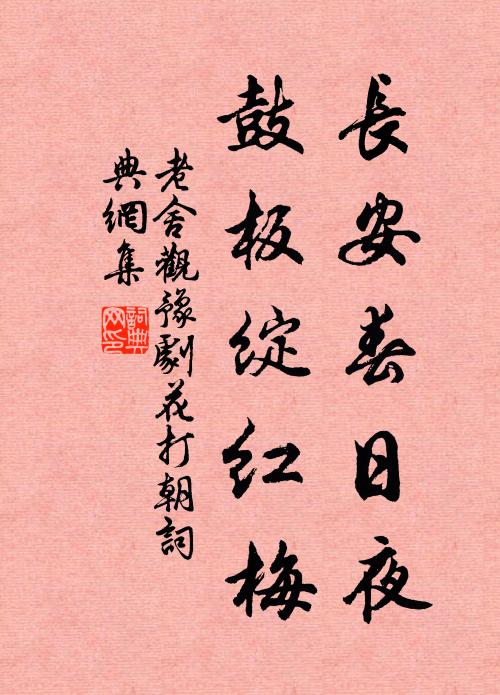 長安春日夜
鼓板綻红梅
老舍觀豫劇花打朝詞
典網集
詞典
网印